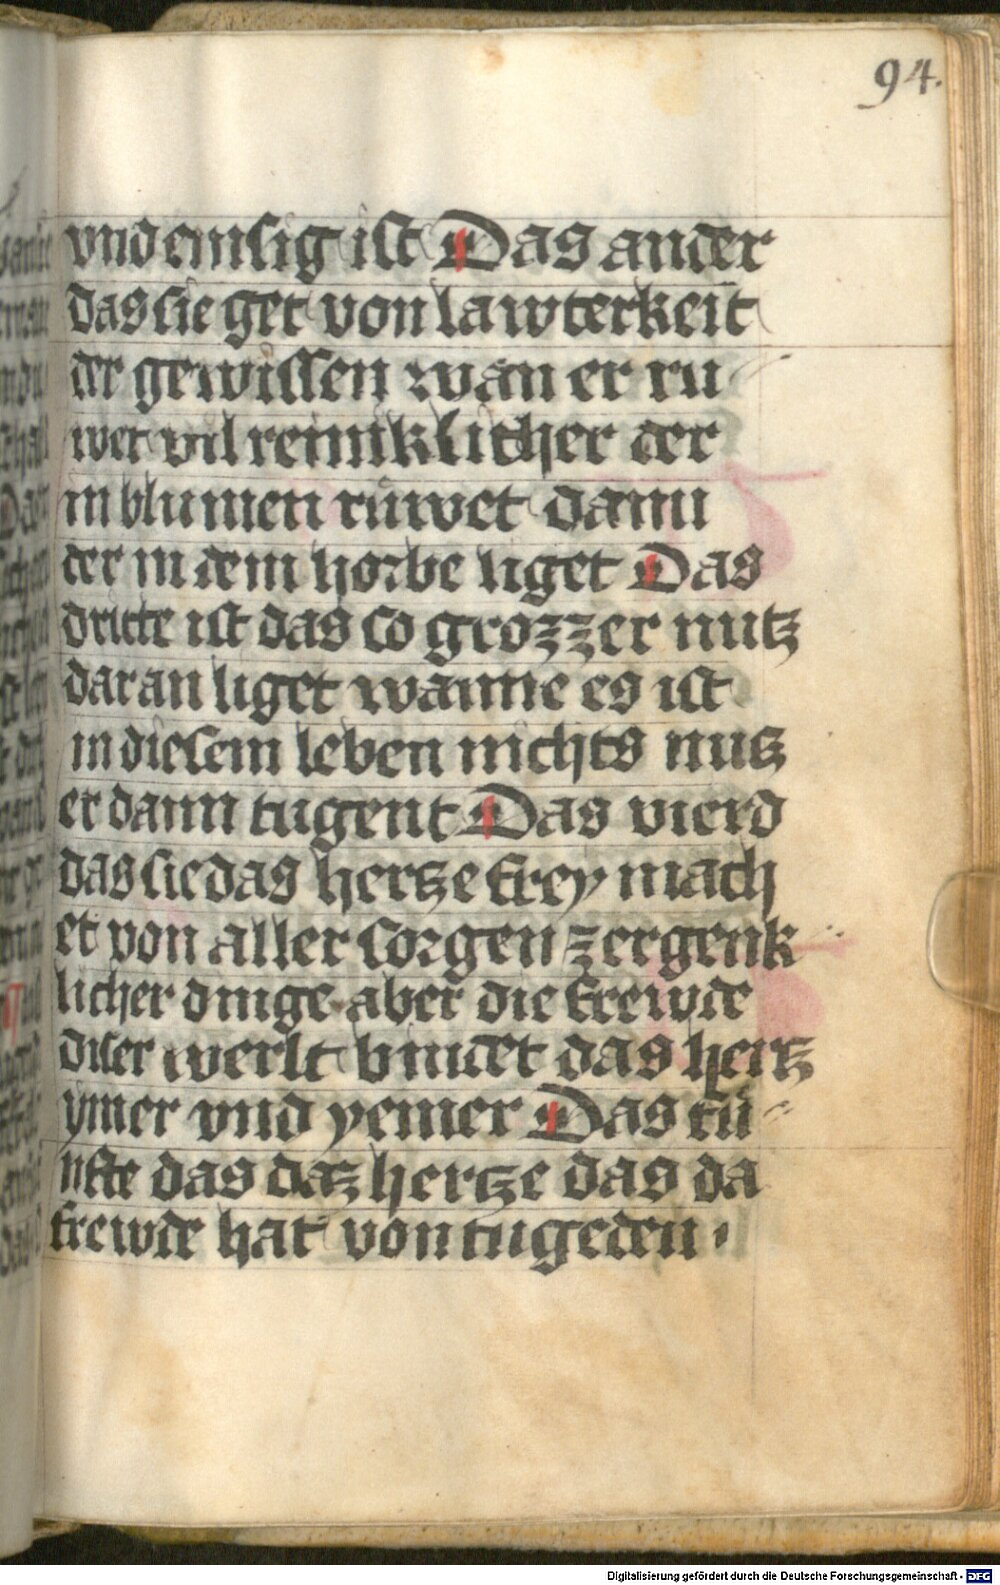 94.
vnd emsig ist Das ander
das sie get von lawterkeit
der gewissen wan er ru
wet vil reiniklicher der
in blumen ruwet dann
der in dem horbe liget Das
dritte ist das so grozzer nutz
dar an liget wanne es ist
in diesem leben nichts nutz
er dann tugent Das vierd
das sie das hertze frey mach
et von aller sorgen zergenk
licher dinge aber die frewde
diser werlt bindet das hertz
ymer vnd yemer Das fu
nfte das daz hertze das da
frewde hat von tugeden
Digitalisierung gefördert durch die Deutsche Forschungsgemeinschaft - DFG